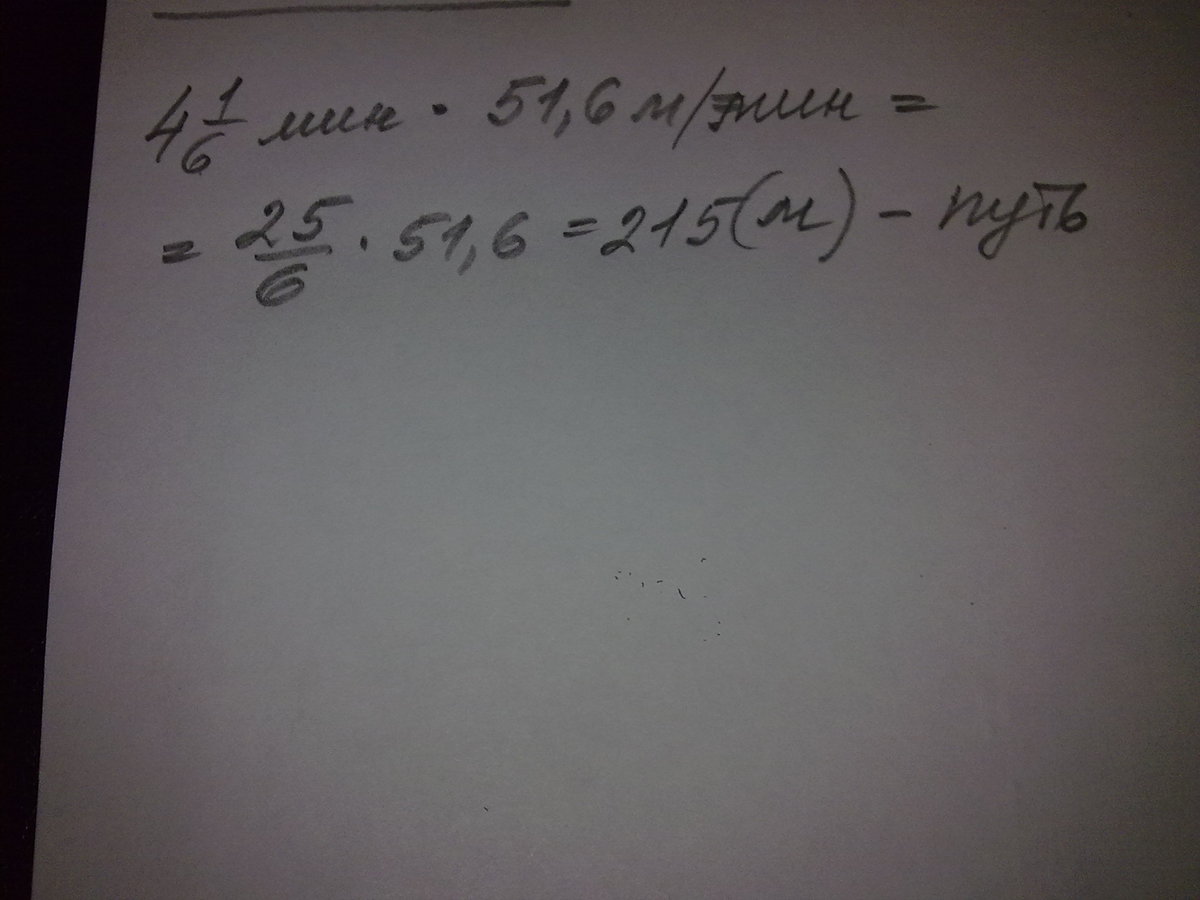 4 1/6 мин · 51,6 м/мин =
= 25/6 · 51,6 = 215 (м) - путь